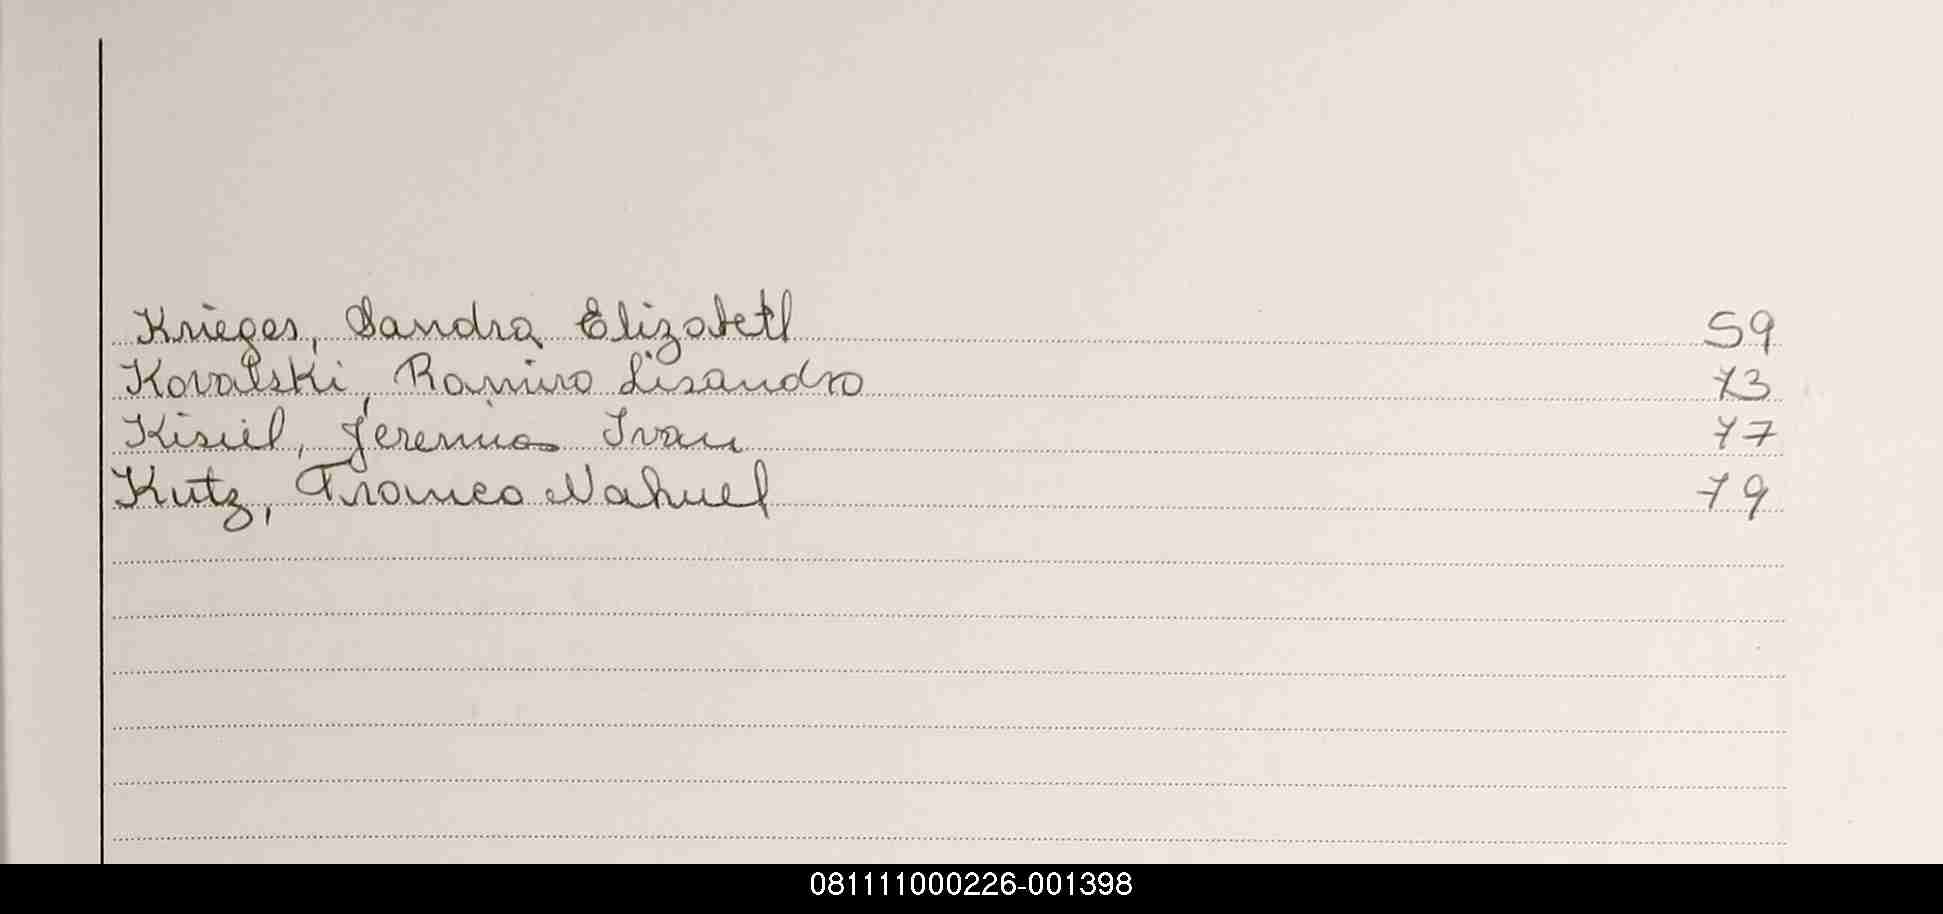 Krieges, Sandra Elizabeth 59
Kovalski, Ramiro Lisandro 73
Kisiel, Jeremias Ivan 77
Kutz, Franco Nahuel 79
081111000226-001398